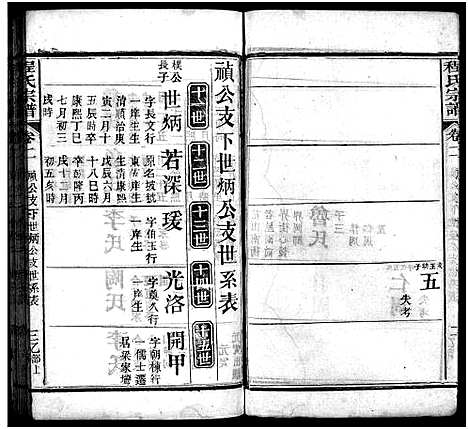 程氏宗譜
卷二
五
失考
禎公支下世炳公支世系表
十一世
十二世
十三世
十四世
十五世
樸公
長子
世炳
字長文行
一庠生生
清順治庚
寅二月十
五辰時卒
康熙丁巳
七月初三
戌時
若深
原名
東庠生行
一生康熙
戊辰六月
十八巳時
卒乾隆丙
戌十二月
初五亥時
瑗
字伯玉行
一庠生
光洛
字奠久行
一
開甲
字朝棟行
一儒士遷
居梁家壋
程氏宗譜
卷二
禎公支下世炳公支世系表